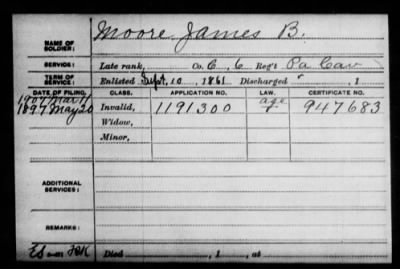 NAME OF SOLDIER: Moore James B.
SERVICE: Late rank, Co. C, 6 Reg't Pa Cav
TERM OF SERVICE: Enlisted Sept. 10, 1861 Discharged , 1
DATE OF FILING. CLASS. APPLICATION NO. LAW. CERTIFICATE NO.
1907 Mar 11 age
1897 May 20 Invalid, 1191300 947683
Widow,
Minor,
ADDITIONAL SERVICES:
REMARKS:
Died , 1 , at